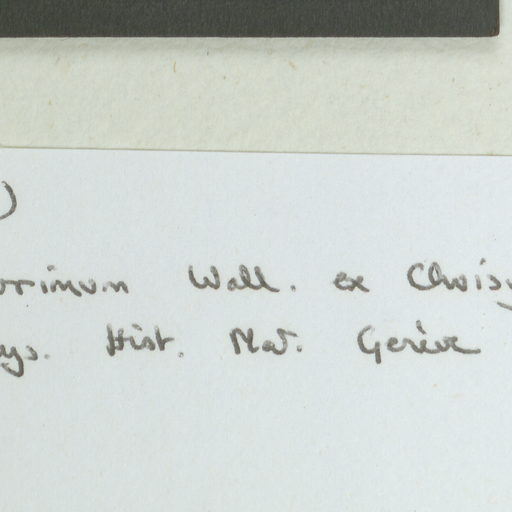 )
orrimum Wall. ex Choisy
ys. Hist. Nat. Genève